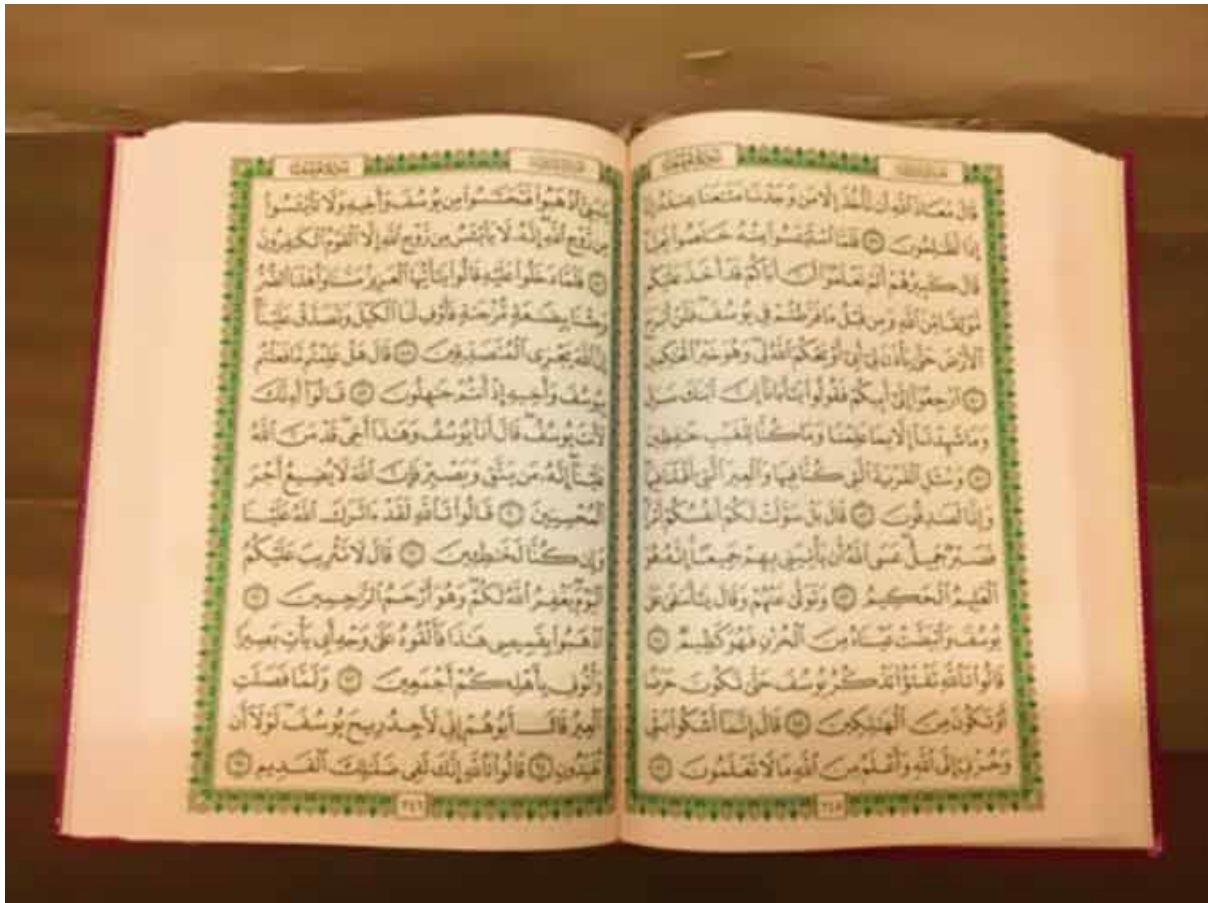 سُورَةُ يُوسُفَ
قَالَ مَعَاذَ ٱللَّهِ أَن نَّأۡخُذَ إِلَّا مَن وَجَدۡنَا مَتَٰعَنَا عِندَهُۥٓ إِنَّآ
إِذٗا لَّظَٰلِمُونَ ٧٩ فَلَمَّا ٱسۡتَيۡـَٔسُواْ مِنۡهُ خَلَصُواْ نَجِيّٗاۖ
قَالَ كَبِيرُهُمۡ أَلَمۡ تَعۡلَمُوٓاْ أَنَّ أَبَاكُمۡ قَدۡ أَخَذَ عَلَيۡكُم
مَّوۡثِقٗا مِّنَ ٱللَّهِ وَمِن قَبۡلُ مَا فَرَّطتُمۡ فِي يُوسُفَۖ فَلَنۡ أَبۡرَحَ
ٱلۡأَرۡضَ حَتَّىٰ يَأۡذَنَ لِيٓ أَبِيٓ أَوۡ يَحۡكُمَ ٱللَّهُ لِيۖ وَهُوَ خَيۡرُ ٱلۡحَٰكِمِينَ
٨٠ ٱرۡجِعُوٓاْ إِلَىٰٓ أَبِيكُمۡ فَقُولُواْ يَٰٓأَبَانَآ إِنَّ ٱبۡنَكَ سَرَقَ
وَمَا شَهِدۡنَآ إِلَّا بِمَا عَلِمۡنَا وَمَا كُنَّا لِلۡغَيۡبِ حَٰفِظِينَ
٨١ وَسۡـَٔلِ ٱلۡقَرۡيَةَ ٱلَّتِي كُنَّا فِيهَا وَٱلۡعِيرَ ٱلَّتِيٓ أَقۡبَلۡنَا فِيهَاۖ
وَإِنَّا لَصَٰدِقُونَ ٨٢ قَالَ بَلۡ سَوَّلَتۡ لَكُمۡ أَنفُسُكُمۡ أَمۡرٗاۖ
فَصَبۡرٞ جَمِيلٌۖ عَسَى ٱللَّهُ أَن يَأۡتِيَنِي بِهِمۡ جَمِيعًاۚ إِنَّهُۥ هُوَ
ٱلۡعَلِيمُ ٱلۡحَكِيمُ ٨٣ وَتَوَلَّىٰ عَنۡهُمۡ وَقَالَ يَٰٓأَسَفَىٰ عَلَىٰ
يُوسُفَ وَٱبۡيَضَّتۡ عَيۡنَاهُ مِنَ ٱلۡحُزۡنِ فَهُوَ كَظِيمٞ ٨٤
قَالُواْ تَٱللَّهِ تَفۡتَؤُاْ تَذۡكُرُ يُوسُفَ حَتَّىٰ تَكُونَ حَرَضًا
أَوۡ تَكُونَ مِنَ ٱلۡهَٰلِكِينَ ٨٥ قَالَ إِنَّمَآ أَشۡكُواْ بَثِّي
وَحُزۡنِيٓ إِلَى ٱللَّهِ وَأَعۡلَمُ مِنَ ٱللَّهِ مَا لَا تَعۡلَمُونَ ٨٦
٢٤٥
سُورَةُ يُوسُفَ
يَٰبَنِيَّ ٱذۡهَبُواْ فَتَحَسَّسُواْ مِن يُوسُفَ وَأَخِيهِ وَلَا تَاْيۡـَٔسُواْ
مِن رَّوۡحِ ٱللَّهِۖ إِنَّهُۥ لَا يَاْيۡـَٔسُ مِن رَّوۡحِ ٱللَّهِ إِلَّا ٱلۡقَوۡمُ ٱلۡكَٰفِرُونَ
٨٧ فَلَمَّا دَخَلُواْ عَلَيۡهِ قَالُواْ يَٰٓأَيُّهَا ٱلۡعَزِيزُ مَسَّنَا وَأَهۡلَنَا ٱلضُّرُّ
وَجِئۡنَا بِبِضَٰعَةٖ مُّزۡجَىٰةٖ فَأَوۡفِ لَنَا ٱلۡكَيۡلَ وَتَصَدَّقۡ عَلَيۡنَآۖ
إِنَّ ٱللَّهَ يَجۡزِي ٱلۡمُتَصَدِّقِينَ ٨٨ قَالَ هَلۡ عَلِمۡتُم مَّا فَعَلۡتُم
بِيُوسُفَ وَأَخِيهِ إِذۡ أَنتُمۡ جَٰهِلُونَ ٨٩ قَالُوٓاْ أَءِنَّكَ
لَأَنتَ يُوسُفُۖ قَالَ أَنَا۠ يُوسُفُ وَهَٰذَآ أَخِيۖ قَدۡ مَنَّ ٱللَّهُ
عَلَيۡنَآۖ إِنَّهُۥ مَن يَتَّقِ وَيَصۡبِرۡ فَإِنَّ ٱللَّهَ لَا يُضِيعُ أَجۡرَ
ٱلۡمُحۡسِنِينَ ٩٠ قَالُواْ تَٱللَّهِ لَقَدۡ ءَاثَرَكَ ٱللَّهُ عَلَيۡنَا
وَإِن كُنَّا لَخَٰطِـِٔينَ ٩١ قَالَ لَا تَثۡرِيبَ عَلَيۡكُمُ
ٱلۡيَوۡمَۖ يَغۡفِرُ ٱللَّهُ لَكُمۡۖ وَهُوَ أَرۡحَمُ ٱلرَّٰحِمِينَ ٩٢
ٱذۡهَبُواْ بِقَمِيصِي هَٰذَا فَأَلۡقُوهُ عَلَىٰ وَجۡهِ أَبِي يَأۡتِ بَصِيرٗا
وَأۡتُونِي بِأَهۡلِكُمۡ أَجۡمَعِينَ ٩٣ وَلَمَّا فَصَلَتِ
ٱلۡعِيرُ قَالَ أَبُوهُمۡ إِنِّي لَأَجِدُ رِيحَ يُوسُفَۖ لَوۡلَآ أَن
تُفَنِّدُونِ ٩٤ قَالُواْ تَٱللَّهِ إِنَّكَ لَفِي ضَلَٰلِكَ ٱلۡقَدِيمِ ٩٥
٢٤٦